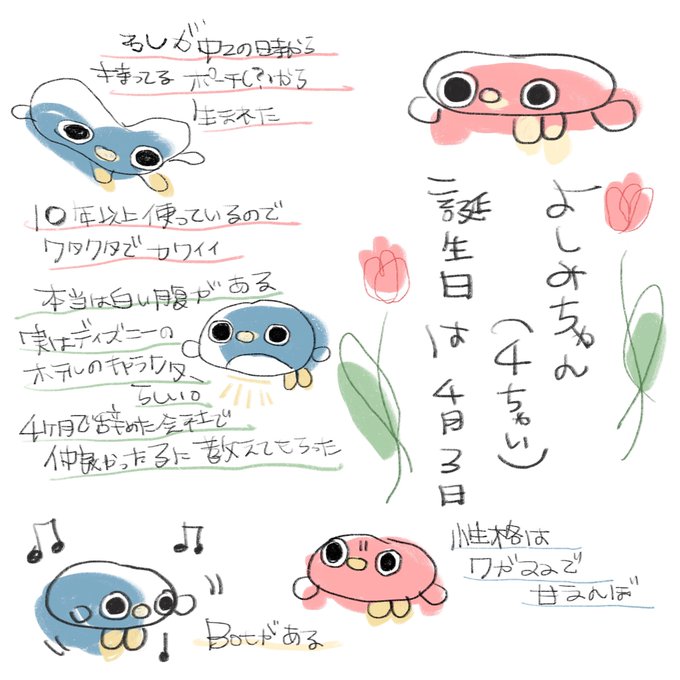 よしみちゃん
(4ちゃい)
誕生日は4月3日
わしが中2の時から
持ってるポーチ(?)から
生まれた
10年以上使っているので
クタクタでカワイイ
本当は白い腹がある
実はディズニーの
ホテルのキャラクター、
らしい。
4ヶ月で辞めた会社で
仲良かった
教えてもらった
性格は
ワガママで
甘えんぼ
Botがある